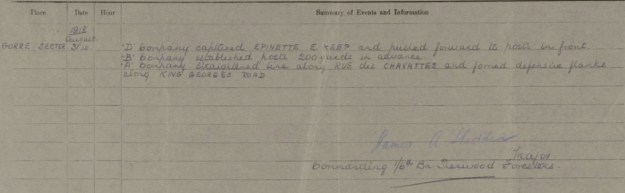 Place Date Hour Summary of Events and Information
1918
August
GORRE SECTOR 31st 'D' Company captured EPINETTE E KEEP and pushed forward 12 posts in front.
'B' Company established posts 200 yards in advance.
'A' Company straightened line along RUE des CHAVATTES and formed defensive flanks
along KING GEORGES ROAD
Major
Commanding 1/6th Bn Sherwood Foresters.